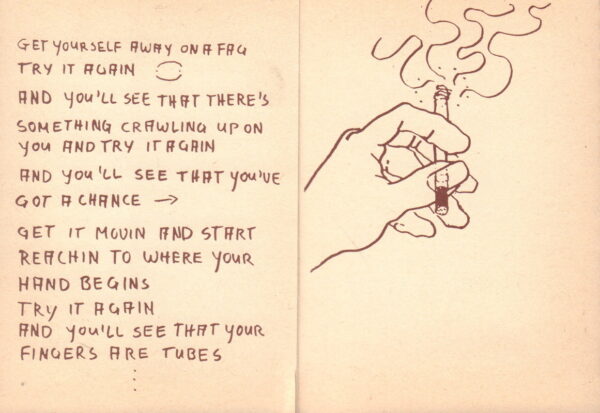 GET YOURSELF AWAY ON A FAG
TRY IT AGAIN
AND YOU'LL SEE THAT THERE'S
SOMETHING CRAWLING UP ON
YOU AND TRY IT AGAIN
AND YOU'LL SEE THAT YOU'VE
GOT A CHANCE →
GET IT MOVIN AND START
REACHIN TO WHERE YOUR
HAND BEGINS
TRY IT AGAIN
AND YOU'LL SEE THAT YOUR
FINGERS ARE TUBES